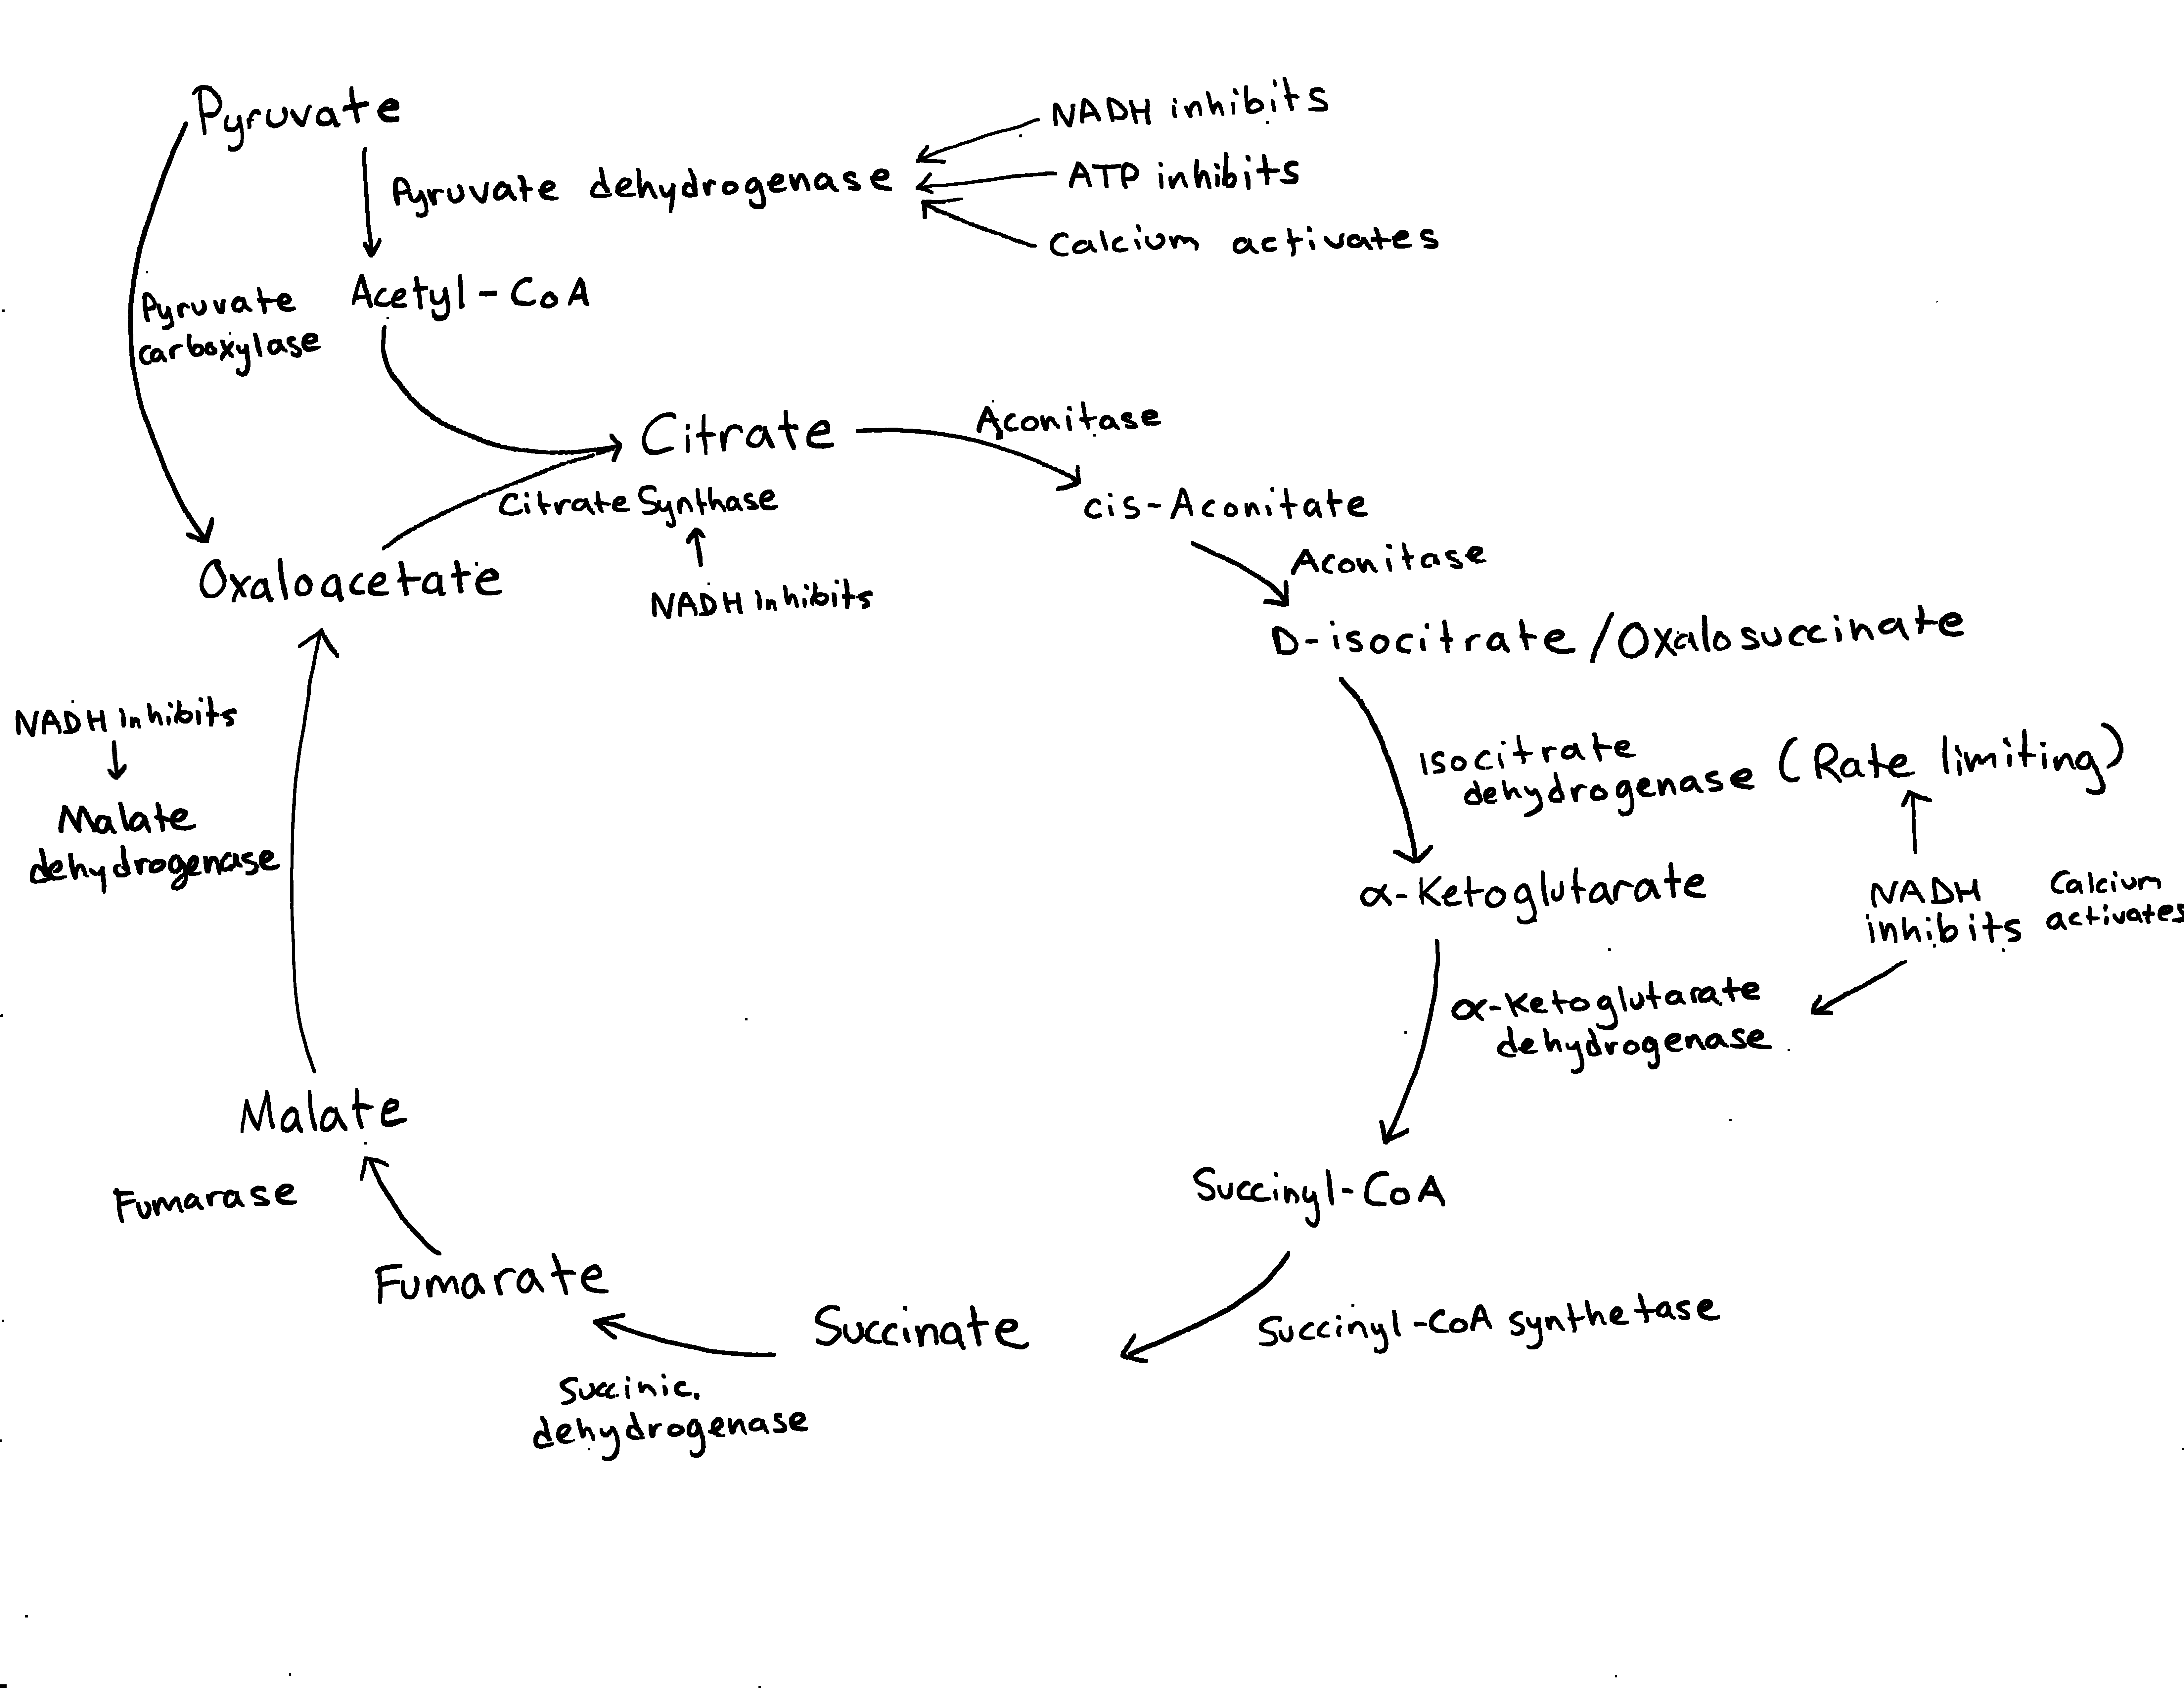 Pyruvate
NADH inhibits
Pyruvate dehydrogenase
ATP inhibits
Calcium activates
Pyruvate
carboxylase
Acetyl-CoA
Citrate
Aconitase
Citrate Synthase
cis-Aconitate
Oxaloacetate
NADH inhibits
Aconitase
D-isocitrate/Oxalosuccinate
NADH inhibits
Malate
dehydrogenase
Isocitrate
dehydrogenase (Rate limiting)
α-Ketoglutarate
NADH
inhibits
Calcium
activates
α-Ketoglutarate
dehydrogenase
Malate
Succinyl-CoA
Fumarase
Fumarate
Succinate
Succinyl-CoA synthetase
Succinic
dehydrogenase